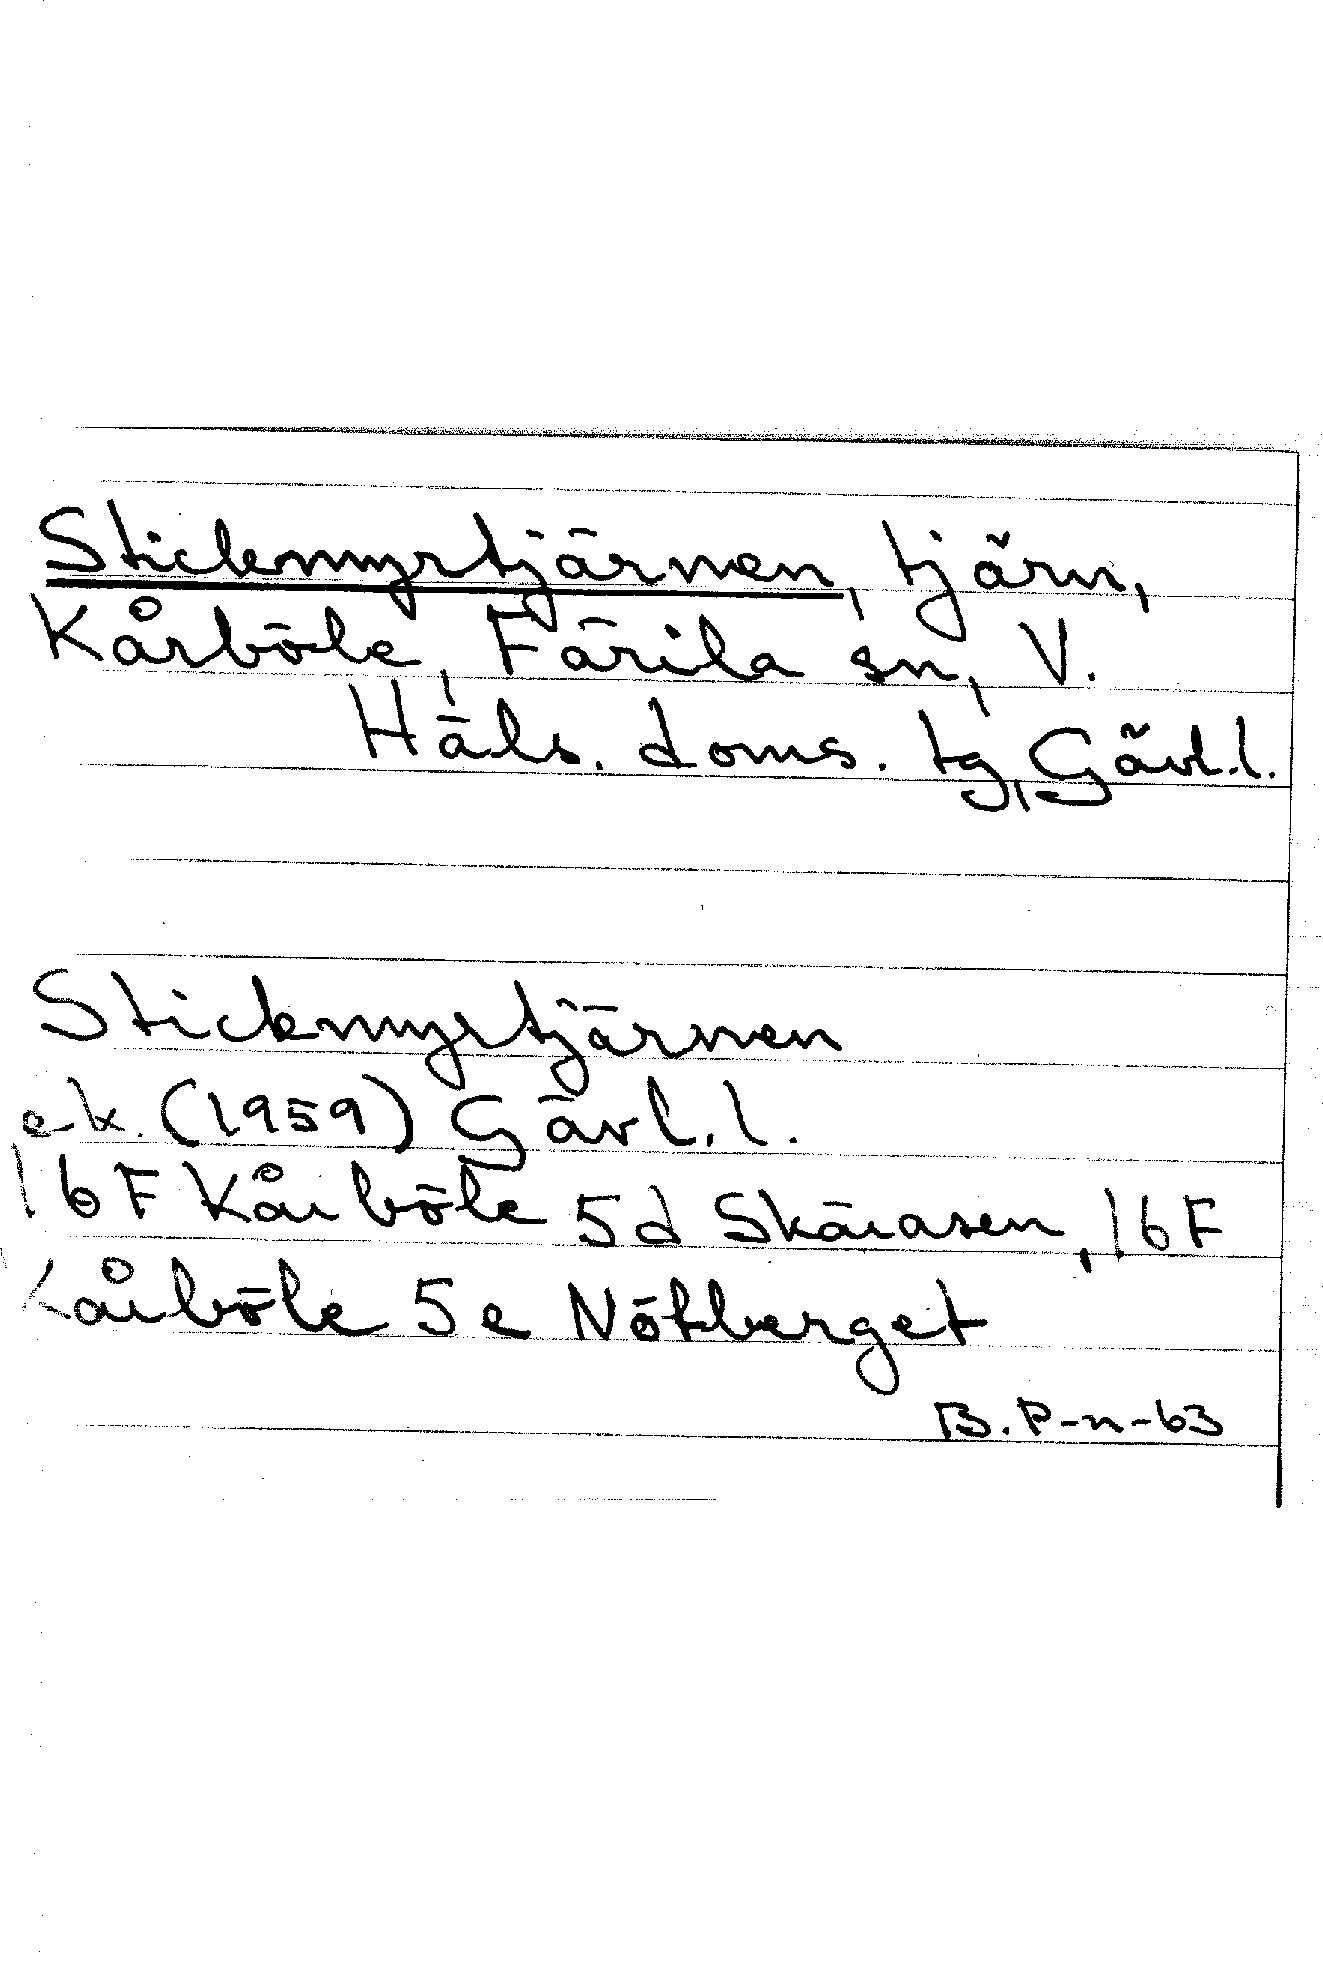 Stickmyrtjärnen, tjärn,
Kårböle, Färila sn, V.
Häls. doms. tg, Gävl.l.
Stickmyrtjärnen
e.k. (1959) Gävl.l.
16F Kårböle 5d Skärasen, 16F
Kårböle 5e Nötberget
B. P-n-63